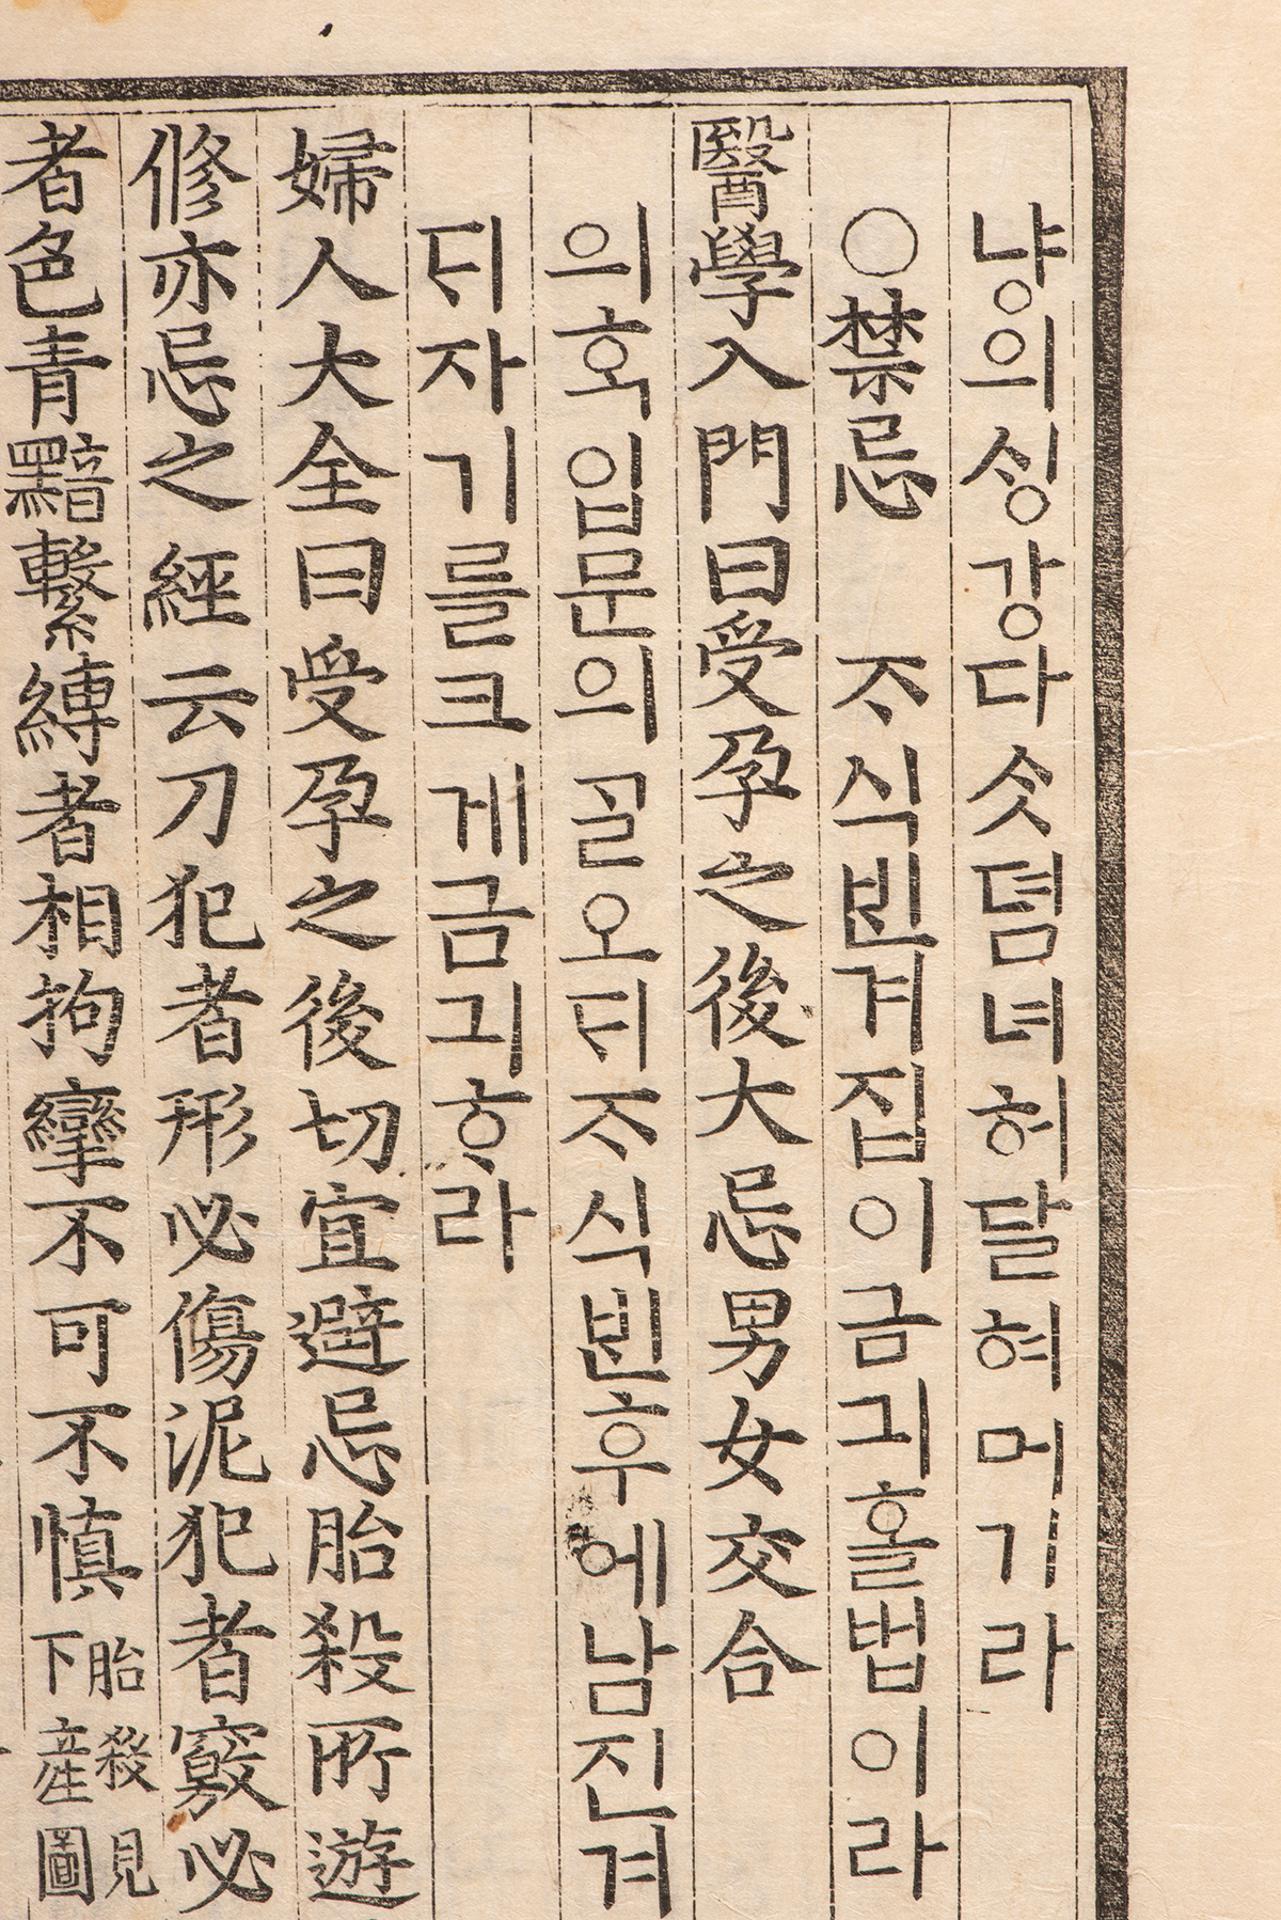 냥의싱강다ᄉᆞᆺ뎜녀허달혀머기라
○禁忌 ᄌᆞ식ᄇᆡᆫ겨집이금긔홀법이라
醫學入門曰受孕之後大忌男女交合
의ᄒᆞᆨ입문의ᄀᆞᆯ오ᄃᆡᄌᆞ식ᄇᆡᆫ후에남진겨
ᄃᆡ자기를크게금긔ᄒᆞ라
婦人大全曰受孕之後切宜避忌胎殺所遊
修亦忌之經云刀犯者形必傷泥犯者竅必
者色青黯繫縛者相拘攣不可不慎胎殺見下産圖